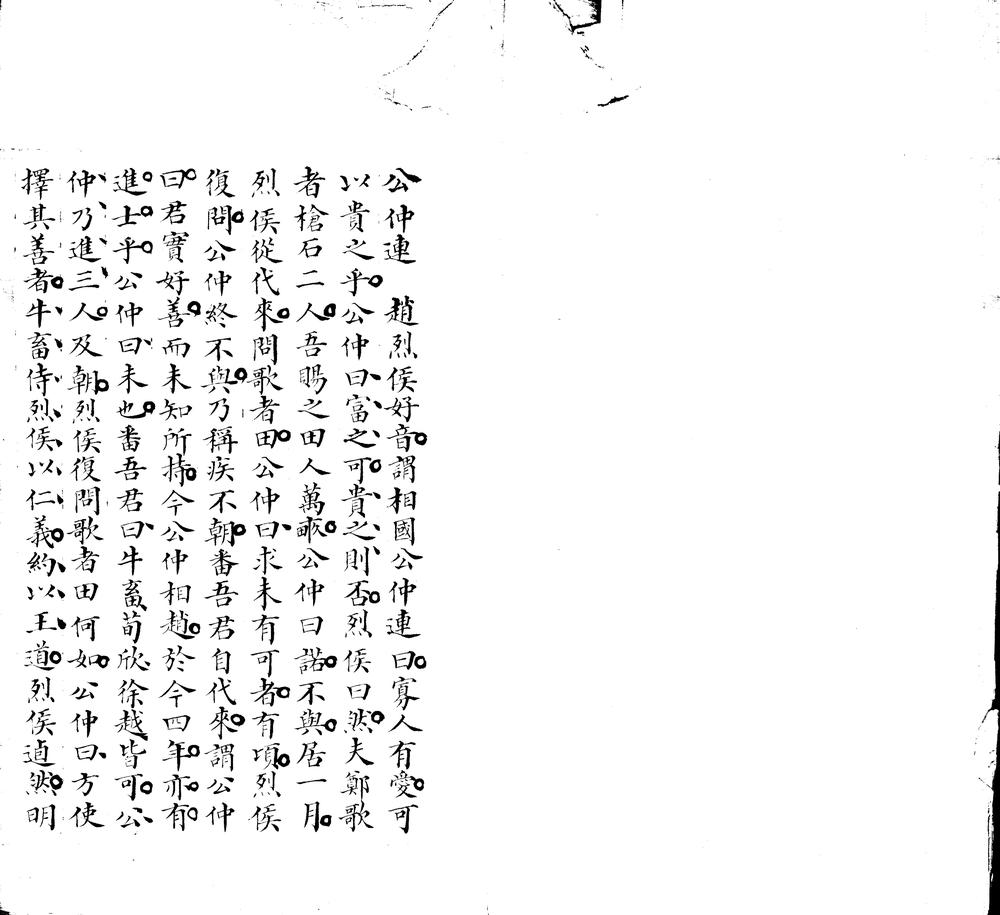 公仲連　趙烈侯好音謂相國公仲連曰寡人有愛可
以貴之乎公仲曰富之可貴之則否烈侯曰然夫鄭歌
者槍石二人吾賜之田人萬畞公仲曰諾不與居一月
烈侯從代來問歌者田公仲曰求未有可者有頃烈侯
復問公仲終不與乃稱疾不朝番吾君自代來謂公仲
曰君實好善而未知所持今公仲相趙於今四年亦有
進士乎公仲曰未也番吾君曰牛畜荀欣徐越皆可公
仲乃進三人及朝烈侯復問歌者田何如公仲曰方使
擇其善者牛畜侍烈侯以仁義約以王道烈侯逌然明